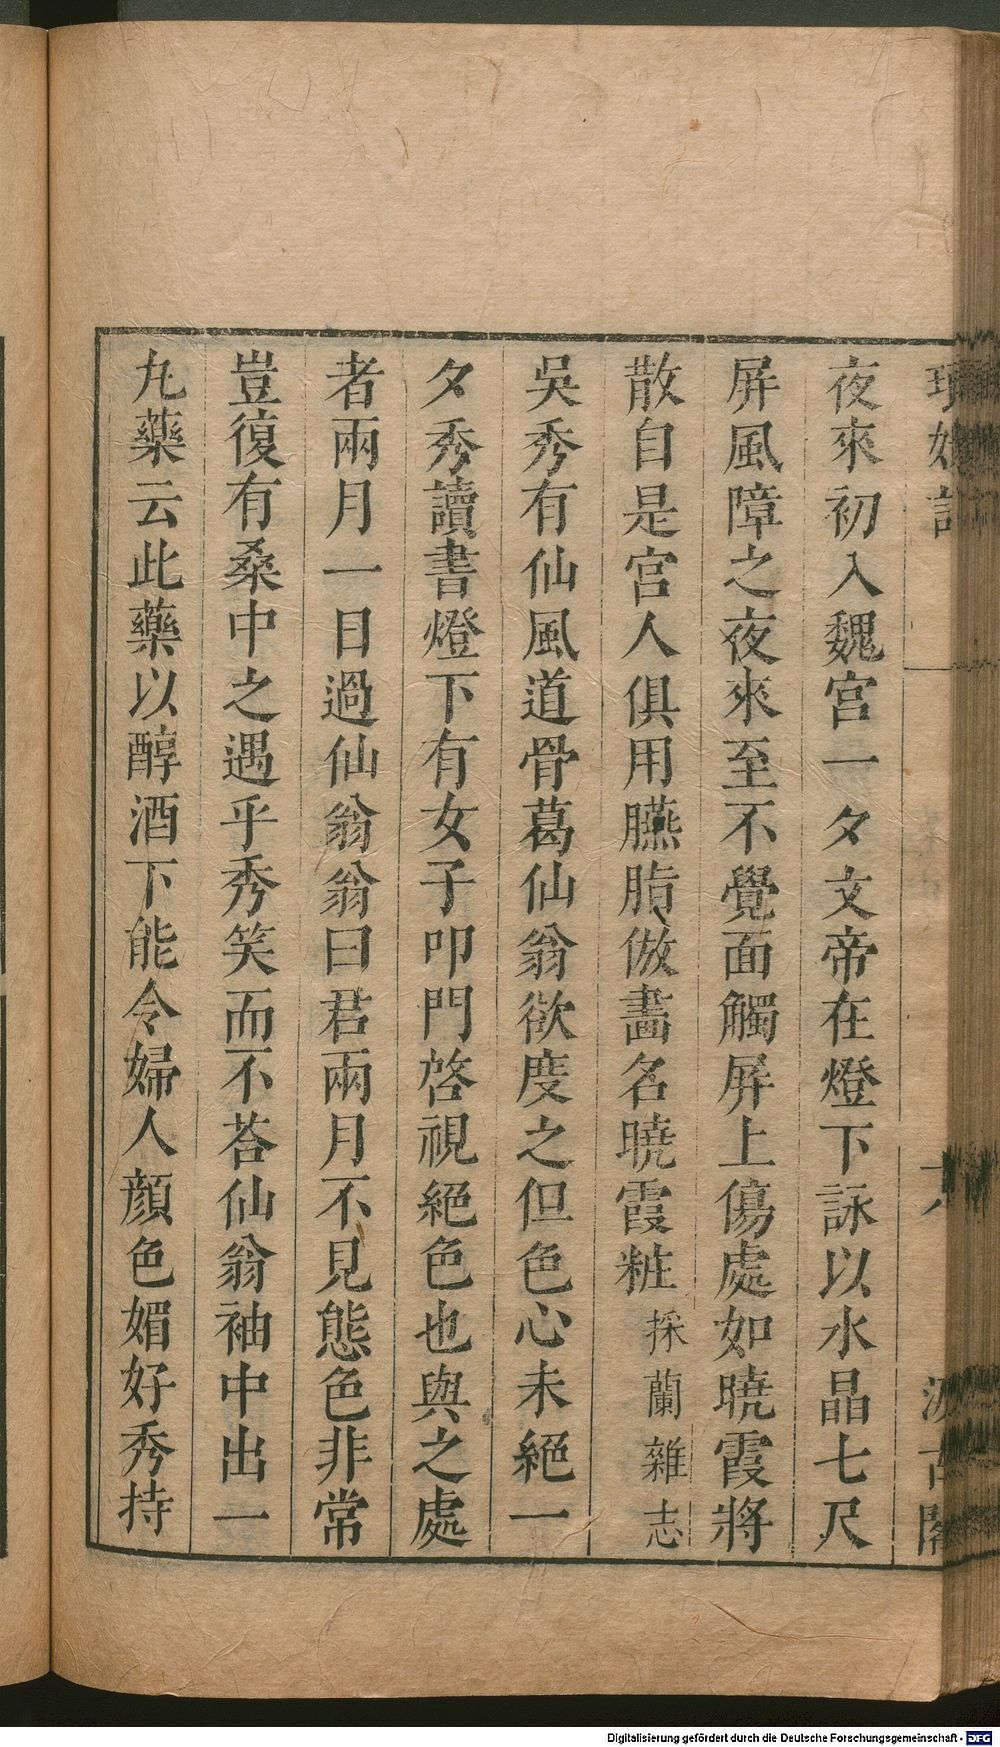 夜來初入魏宮一夕文帝在燈下詠以水晶七尺
屏風障之夜來至不覺面觸屏上傷處如曉霞將
散自是宮人俱用臙脂倣畵名曉霞粧採蘭雜志
吳秀有仙風道骨葛仙翁欲度之但色心未絕一
夕秀讀書燈下有女子叩門啓視絕色也與之處
者兩月一日過仙翁翁曰君兩月不見態色非常
豈復有桑中之遇乎秀笑而不荅仙翁袖中出一
丸藥云此藥以醇酒下能令婦人顔色媚好秀持
Digitalisierung gefördert durch die Deutsche Forschungsgemeinschaft - DFG